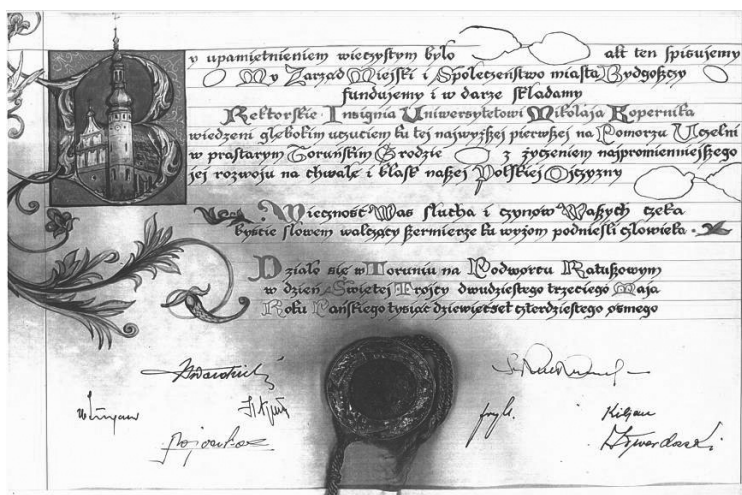 By upamiętnieniem wieczystym było akt ten spisujemy
My Zarząd Miejski i Społeczeństwo miasta Bydgoszczy
fundujemy i w darze składamy
Rektorskie Insignia Uniwersytetowi Mikołaja Kopernika
wiedzeni głębokim uczuciem ku tej najwyższej pierwszej na Pomorzu Uczelni
w prastarym Toruńskim Grodzie z życzeniem najpromienniejszego
jej rozwoju na chwałę i blask naszej Polskiej Ojczyzny
Wieczność Was słucha i czynów Waszych czeka
byście słowem walczący szermierze ku wyżom podnieśli człowieka
Działo się w Toruniu na Podworcu Ratuszowym
w dzień Świętej Trojcy dwudziestego trzeciego Maja
Roku Pańskiego tysiąc dziewięćset czterdziestego osmego